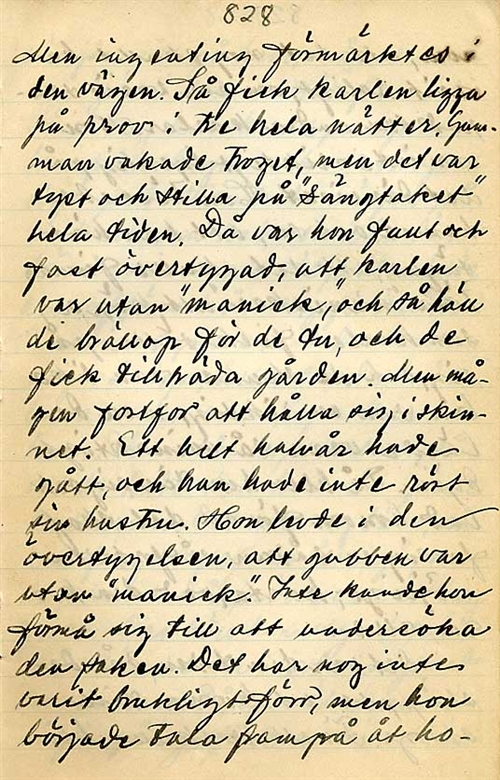 828
Men ingenting förmärktes i
den vägen. Så fick karlen ligga
på prov i tre hela nätter. Gum-
man vakade troget, men det var
tyst och stilla på "sängtaket"
hela tiden. Då var hon fullt och
fast övertygad, att karlen
var utan "manick", och så höll
de bröllop för de tu, och de
fick tillträda gården. Men må-
gen fortfor att hålla sig i skin-
net. Ett helt halvår hade
gått, och han hade inte rört
sin hustru. Hon levde i den
övertygelsen, att gubben var
utan "manick". Inte kunde hon
förmå sig till att undersöka
den saken. Det har nog inte
varit brukligt förr, men hon
började tala fram på åt ho-